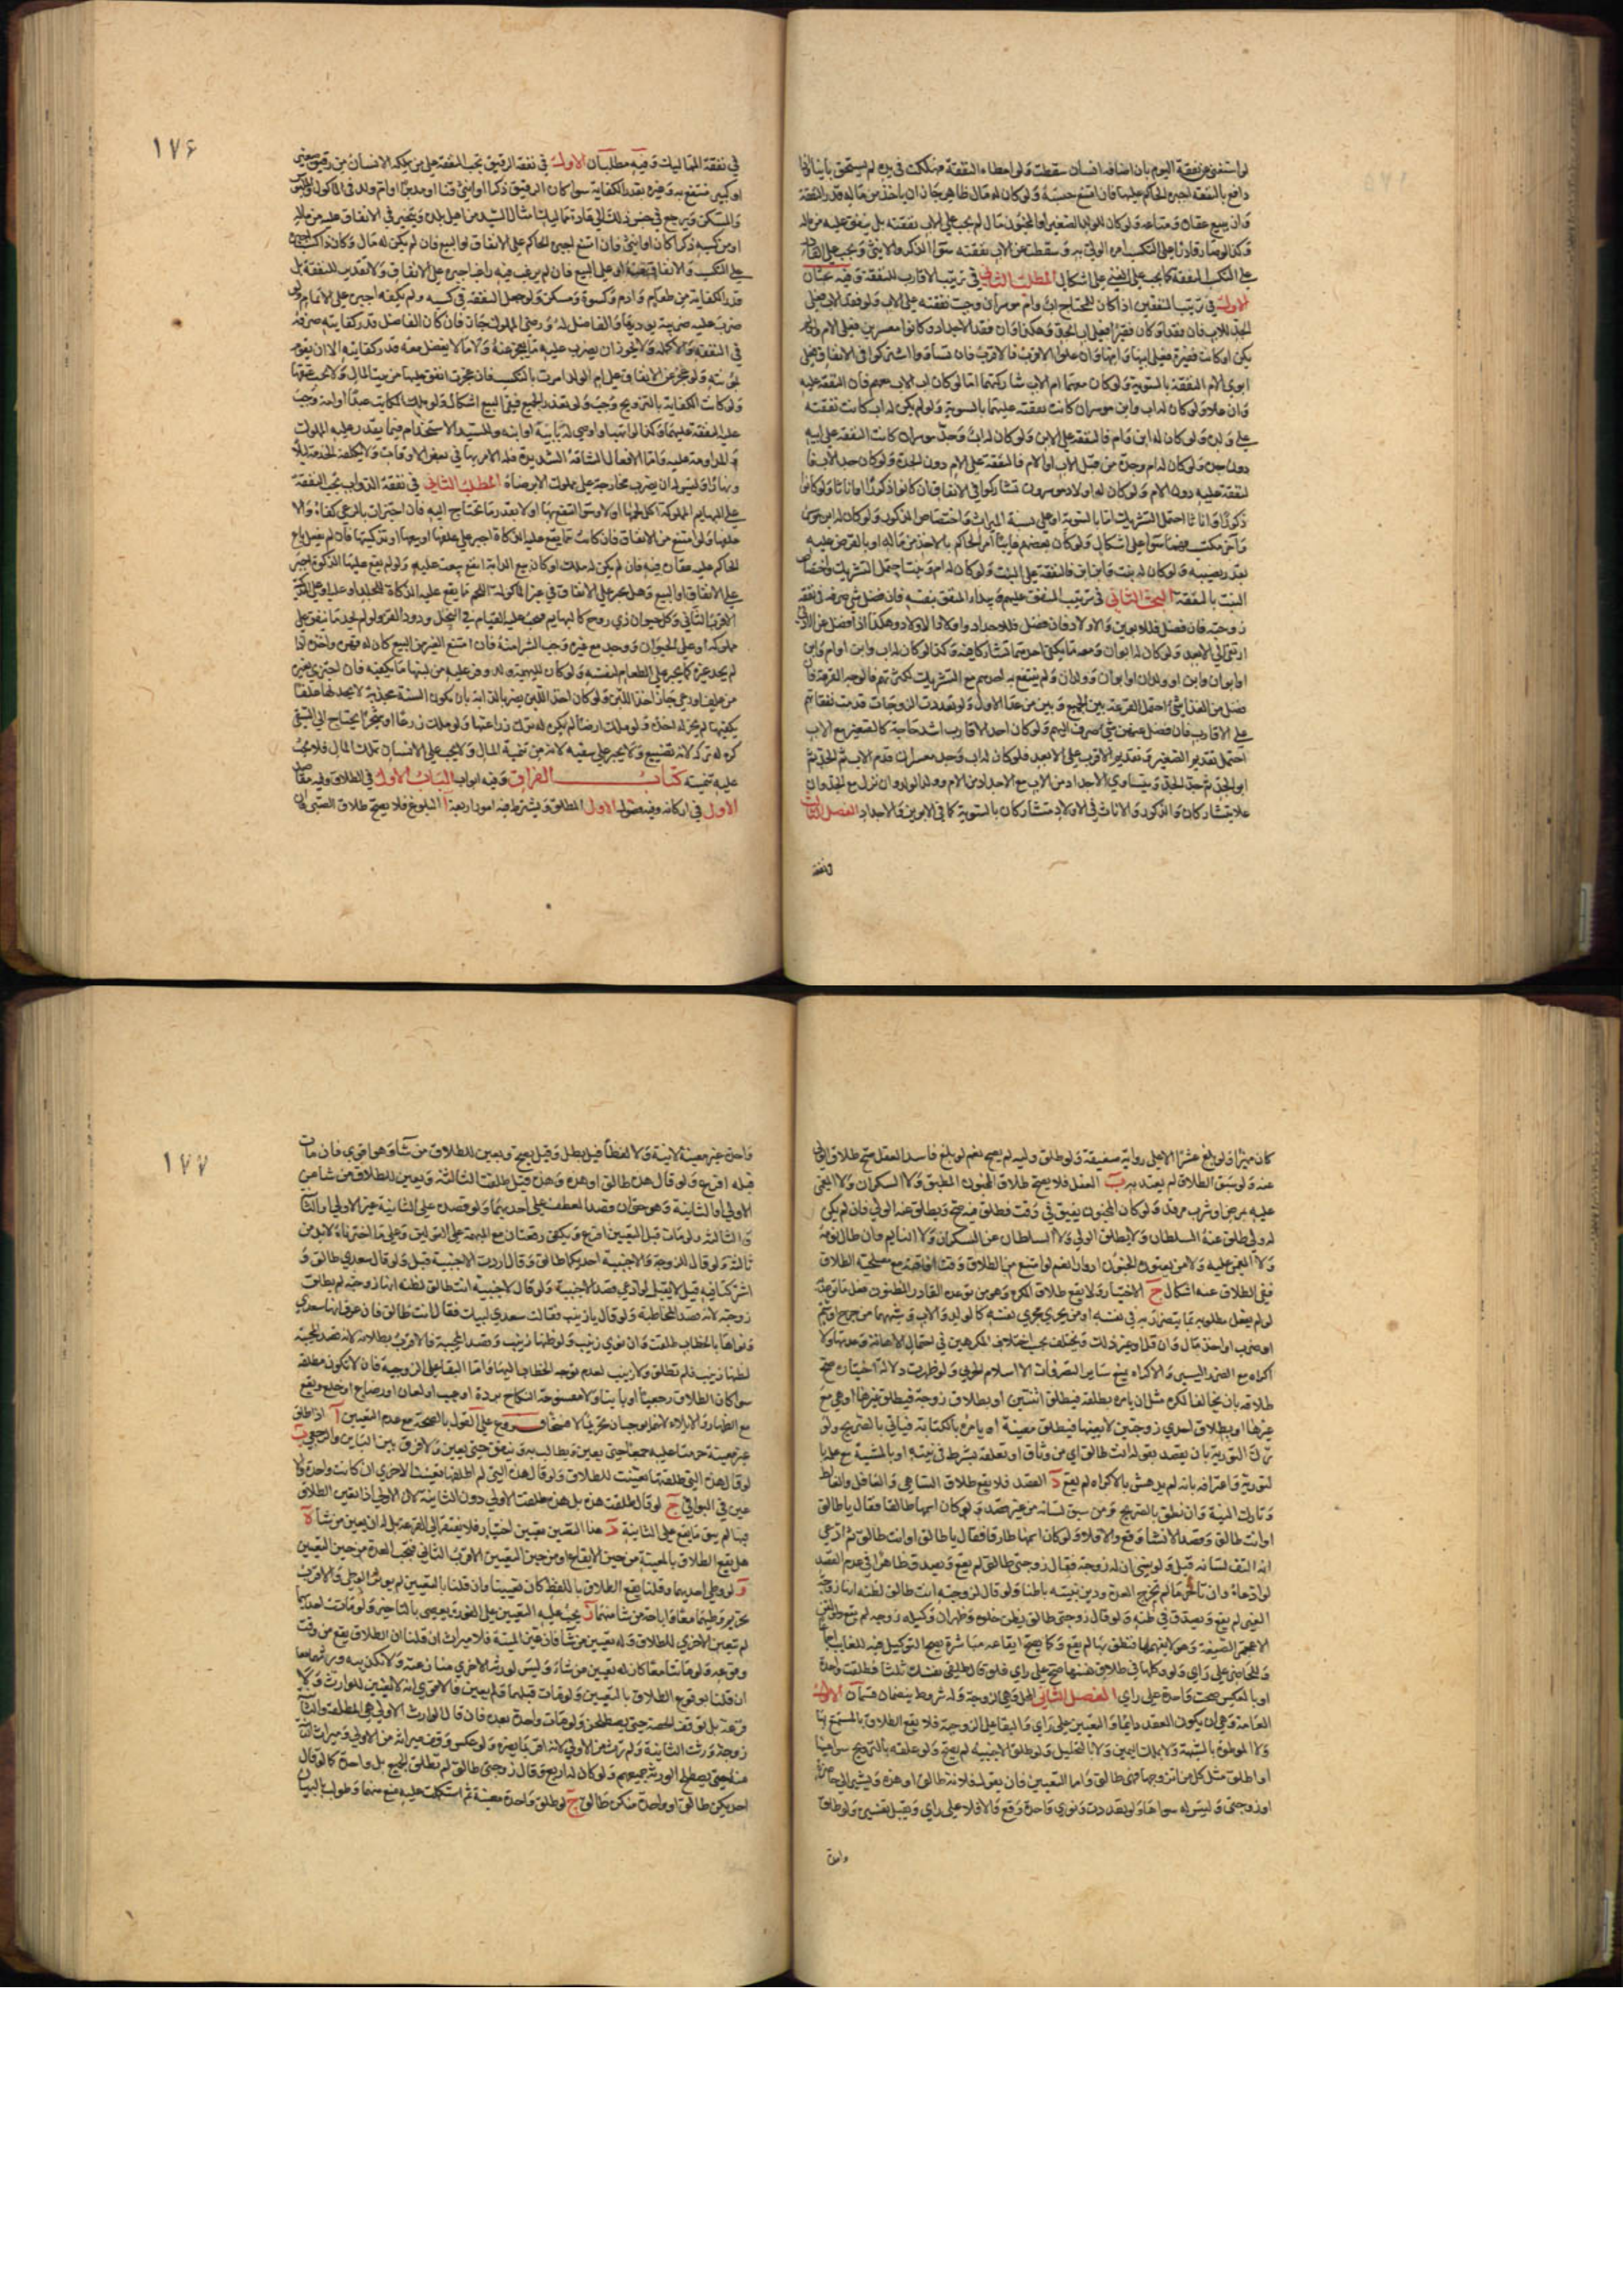 لو استغنى عن نفقة اليوم بان اضافه انسان سقطت ولو اعطاه النفقة فهلكت فى يده لم يستحق ثانيا ولو
دافع بالنفقة اجبره الحاكم عليها فان امتنع حبسه ولو كان له مال ظاهر جاز ان ياخذ من ماله قدر النفقة
وان يبيع عقاره ومتاعه ولو كان للولد الصغير او المجنون مال لم يجب على الاب نفقته بل ينفق عليه من ماله
وكذا لو صار قادرا على التكسب امره الولى به وسقطت عن الاب نفقته سواء الذكر والانثى ويجب على القادر
على التكسب النفقة كما يجب على الغنى على اشكال المطلب الثانى فى ترتيب الاقارب للنفقة وفيه بحثان
الاول فى ترتيب المنفقين اذا كان للمحتاج اب وام موسران وجبت نفقته على الاب ولو فقد الاب فعلى
الجد للاب فان فقد او كان فقيرا فعلى اب الجد وهكذا فان فقد الاجداد وكانوا معسرين فعلى الام ولو لم
يكن او كانت فقيرة فعلى ابيها وامها وان علوا الاقرب فالاقرب فان تساووا اشتركوا فى الانفاق فعلى
ابوى الام النفقة بالسوية ولو كان معهما ام الاب شاركتهما اما لو كان اب الاب معهم فان النفقة عليه
وان علا ولو كان له اب وابن موسران كانت نفقته عليهما بالسوية ولو لم يكن له اب كانت نفقته
على ولده ولو كان له ابن وام فالنفقة على الابن ولو كان له اب وجد موسران كانت النفقة على ابيه
دون جده ولو كان له ام وجدة من قبل الاب او الام فالنفقة على الام دون الجدة ولو كان جد الاب فا
لنفقة عليه دون الام ولو كان له اولاد موسرون تشاركوا فى الانفاق ان كانوا ذكورا او اناثا ولو كانوا
ذكورا واناثا احتمل التشريك اما بالسوية او على نسبة الميراث واختصاص الذكور ولو كان له ابن موسر
وآخر مكتسب فهما سواء على اشكال ولو كان بعضهم غايبا امر الحاكم بالاخذ من ماله او بالقرض عليه
بقدر نصيبه ولو كان له بنت وابن ابن فالنفقة على البنت ولو كان له ام وبنت احتمل التشريك واختصاص
البنت بالنفقة البحث الثانى فى ترتيب المنفق عليهم ويبداء المنفق بنفسه فان فضل شى صرفه فى نفقة
زوجته فان فضل فللابوين والاولاد فان فضل فللاجداد واولاد الاولاد وهكذا اذا فضل عن الادنى
ارتقى الى الابعد ولو كان له ابوان ومعه ما يكفى احدهما تشاركا فيه وكذا لو كان له اب وابن او ام وابن
او ابوان وابن او ولدان او ابوان وولدان ولو لم ينتفع به احدهم مع التشريك لكثرتهم فالوجه القرعة فان
فضل من الغذا شى احتمل القرعة بين الجميع وبين من عدا الاول ولو تعددت الزوجات قدمت نفقاتهم
على الاقارب فان فضل عنهن شى صرف اليهم ولو كان احد الاقارب اشد حاجة كالصغير مع الاب
احتمل تقديم الصغير وتقديم الاقرب على الابعد فلو كان له اب وجد معسران قدم الاب ثم الجد ثم
ابو الجد ثم جد الجد ويتساوى الاجداد من الاب مع الاجداد من الام وولد الولد وان نزل مع الجد وان
علا يتشاركان والذكور والاناث فى الاولاد متشاركان بالسوية كما فى الابوين والاجداد الفصل الثالث
فى نفقة
١٧٦
فى نفقة المماليك وفيه مطلبان الاول فى نفقة الرقيق تجب النفقة على من يملكه الانسان من رقيق صغير
او كبير منتفع به وغيره بقدر الكفاية سواء كان الرقيق ذكرا او انثى قنا او مدبرا او ام ولد فى الماكول والملبوس
والمسكن ويرجع فى جنس ذلك الى عادة مماليك امثال السيد من اهل بلده ويتخير فى الانفاق عليه من ماله
او من كسبه ذكرا كان او انثى فان امتنع اجبره الحاكم على الانفاق او البيع فان لم يكن له مال وكان ذا كسب اجبره
على التكسب والانفاق او على البيع فان لم يرغب فيه راغب اجبره على الانفاق ولا تقدير للنفقة بل
قدر الكفاية من طعام وادم وكسوة ومسكن ولو جعل النفقة فى كسبه ولم يكفه اجبر على الاتمام ولو
ضرب عليه ضريبة يوديها والفاضل له ورضى المملوك جاز فان كان الفاضل قدر كفايته صرفه
فى النفقة والا كمله ولا يجوز ان يضرب عليه ما يعجز عنه ولا ما لا يفضل معه قدر كفايته الا ان يقوم
بمؤنته ولو عجز عن الانفاق على ام الولد امرت بالتكسب فان عجزت انفق عليها من بيت المال ولا يجب عتقها
ولو كانت الكفاية بالتزويج وجب ولو تعذر الجميع ففى البيع اشكال ولو ملك المكاتب عبدا او امة وجب
عليه النفقة عليهما وكذا لو اتهب او اوصى له بابيه او ابنه وللسيد الاستخدام فيما يقدر عليه المملوك
والمداومة عليه واما الافعال الشاقة الشديدة فله الامر بها فى بعض الاوقات ولا يكلفه الخدمة ليلا
ونهارا وليس له ان يضرب مخارجة على مملوك الا برضاه المطلب الثانى فى نفقة الدواب تجب النفقة
على البهايم المملوكة اكل لحمها او لا وسواء انتفع بها او لا بقدر ما تحتاج اليه فان اجتزات بالرعى كفاه والا
علفها ولو امتنع من الانفاق فان كانت مما يقع عليها الذكاة اجبر على علفها او بيعها او تذكيتها فان لم يفعل باع
الحاكم عليه عقاره فيه فان لم يكن له ملك او كان بيع الدابة انفع بيعت عليه ولو لم يقع عليها الذكوة اجبر
على الانفاق او البيع وهل يجبر على الانفاق فى غير ماكولة اللحم مما يقع عليه الذكاة للجلد او عليه وعلى التذكية
الاقرب الثانى وكل حيوان ذى روح كالبهايم فيجب عليه القيام فى النحل ودود القز ولو لم يجد ما ينفق على
مملوكه او على الحيوان ووجد مع غيره وجب الشراء منه فان امتنع الغير من البيع كان له قهره واخذه اذا
لم يجد غيره كما يجبر على الطعام لنفسه ولو كان للبهيمة ولد وفر عليه من لبنها ما يكفيه فان اجتزى بغيره
من علف او رعى جاز اخذ اللبن ولو كان اخذ اللبن يضر بالدابة بان يكون السنة مجدبة لا يجد لها علفا
يكفيها لم يجز له اخذه ولو ملك ارضا لم يكره له ترك زراعتها ولو ملك زرعا او شجرا يحتاج الى السقى
كره له تركه لانه تضييع ولا يجبر على سقيه لانه من تنمية المال ولا يجب على الانسان تملك المال فلا يجب
عليه تنميته كتاب الفراق وفيه ابواب الباب الاول فى الطلاق وفيه مقاصد
الاول فى اركانه وفيه فصول الاول المطلق ويشترط فيه امور اربعة آ البلوغ فلا يصح طلاق الصبى وان
كان مميزا ولو بلغ عشرا الا على رواية ضعيفة ولو طلق وليه لم يصح نعم لو بلغ فاسد العقل صح طلاق الولى
عنه ولو سبق الطلاق لم يعتد به ب العقل فلا يصح طلاق المجنون المطبق ولا السكران ولا المغمى
عليه بمرض او شرب مرقد ولو كان المجنون يفيق فى وقت فطلق فيه صح ويطلق عنه الولى فان لم يكن
له ولى طلق عنه السلطان ولا يطلق الولى ولا السلطان عن السكران ولا النايم وان طال نومه
ولا المغمى عليه ولا من يعتوره الجنون ادوارا نعم لو امتنع من الطلاق وقت افاقته مع مصلحة الطلاق
ففى الطلاق عنه اشكال ج الاختيار فلا يقع طلاق المكره وهو من توعده القادر المظنون فعل ما توعده
لو لم يفعل مطلوبه بما يتضرر به فى نفسه او من يجرى مجرى نفسه كالولد والاب وشبههما من جرح او شتم
او ضرب او اخذ مال وان قل او غير ذلك ويختلف بحسب اختلاف المكرهين فى احتمال الاهانة وعدمها ولا
اكراه مع الضرر اليسير والاكراه يمنع ساير التصرفات الا اسلام الحربى ولو ظهرت دلالة اختياره صح
طلاقه بان يخالف المكره مثل ان يامره بطلقة فيطلق اثنتين او بطلاق زوجة فيطلق غيرها او هى مع
غيرها او بطلاق احدى زوجتين لا بعينها فيطلق معينة او يامره بالكتابة فياتى بالصريح ولو
ترك التورية بان يقصد بقوله انت طالق اى من وثاق او تعلقه بشرط فى نيته او بالمشية مع علمه با
لتورية واعترافه بانه لم يدهش بالاكراه لم يقع د القصد فلا يقع طلاق الساهى والغافل والغالط
وتارك النية وان نطق بالصريح ومن سبق لسانه من غير قصد ولو كان اسمها طالقا فقال يا طالق
او انت طالق وقصد الانشاء وقع والا فلا ولو كان اسمها طارقا فقال يا طالق او انت طالق ثم ادعى
انه التف لسانه قبل ولو نسى ان له زوجة فقال زوجتى طالق لم يقع ويصدق ظاهرا فى عدم القصد
لو ادعاه وان تاخر ما لم تخرج العدة ودين بنيته باطنا ولو قال لزوجته انت طالق لظنه انها زوجة
الغير لم يقع ويصدق فى ظنه ولو قال زوجتى طالق بظن خلوه وظهر ان وكيله زوجه لم يقع ولو لقن
الاعجمى الصيغة وهو لا يفهمها فنطق بها لم يقع وكما يصح ايقاعه مباشرة يصح التوكيل فيه للغايب اجماعا
وللحاضر على راى ولو وكلها فى طلاق نفسها صح على راى فلو قال طلقى نفسك ثلثا فطلقت واحدة
او بالعكس صحت واحدة على راى الفصل الثانى المحل وهى الزوجة وله شروط ينضمان قسمان الاول
العامة وهى ان يكون العقد دايما والتعيين على راى والبقاء على الزوجية فلا يقع الطلاق بالمستمتع بها
ولا الموطوة بالشبهة ولا بملك اليمين ولا بالتحليل ولو طلق الاجنبية لم يصح ولو علقه بالتزويج سواء عينها
او اطلق مثل كل من اتزوجها فهى طالق واما التعيين فان يقول فلانة طالق او هذه ويشير الى حاضرة
او زوجتى وليس له سواها ولو تعددت ونوى واحدة وقع والا فلا على راى ويقبل تفسيره ولو طلق
واحدة
١٧٧
واحدة غير معينة لا نية ولا لفظا قيل بطل وقيل يصح ويعين للطلاق من شاء وهو اقوى فان مات
قبله اقرع ولو قال هذه طالق او هذه وهذه قيل طلقت الثالثة ويعين للطلاق من شاء من
الاولى او الثانية وهو حق ان قصد العطف على احديهما ولو قصد على الثانية عين الاولى او الثا
نية والثالثة ولو مات قبل التعيين اقرع ويكفى رقعتان مع المبهمة على القولين وعلى ما اخترناه لابد من
ثالثة ولو قال للزوجة والاجنبية احديكما طالق وقال اردت الاجنبية قبل ولو قال سعدى طالق و
اشتركتا فيه قيل لا يقبل لو ادعى قصد الاجنبية ولو قال لاجنبية انت طالق لظنه انها زوجته لم يطلق
زوجته لانه قصد المخاطبة ولو قال يا زينب فقالت سعدى لبيك فقال انت طالق فان عرف انها سعدى
ونواها بالخطاب طلقت وان نوى زينب ولو ظنها زينب وقصد المجيبة فالاقرب بطلانه لانه قصد المجيبة
لظنها زينب فلم تطلق ولا زينب لعدم توجه الخطاب اليها واما البقاء على الزوجية فان لا تكون مطلقة
سواء كان الطلاق رجعيا او باينا ولا مفسوخة النكاح بردة او عيب او لعان او رضاع او خلع ويقع
مع الظهار والايلاء لانهما يوجبان تحريما لا فسخا فروع على القول بالصحة مع عدم التعيين آ اذا طلق
غير معينة حرمتا عليه جميعا حتى يعين ويطالب به وينفق حتى يعين ولا فرق بين الباين والرجعى ب
لو قال هذه التى طلقتها تعينت للطلاق ولو قال هذه التى لم اطلقها تعينت الاخرى ان كانت واحدة والا
عين فى البواقى ج لو قال طلقت هذه بل هذه طلقت الاولى دون الثانية لان الاولى اذا تعين الطلاق
فيها لم يبق ما يقع على الثانية د هذا التعيين تعيين اختيار فلا يفتقر الى القرعة بل له ان يعين من شاء ه
هل يقع الطلاق بالمعينة من حين الايقاع او من حين التعيين الاقرب الثانى فتجب العدة من حين التعيين
و لو وطى احديهما وقلنا يقع الطلاق باللفظ كان تعيينا وان قلنا بالتعيين لم يوثر الوطى والاقرب
تحريم وطيهما معا واباحة من شاء منهما ز يجب عليه التعيين على الفور ويعصى بالتاخير ولو ماتت احديهما
لم تتعين الاخرى للطلاق وله تعيين من شاء فان عين الميتة فلا ميراث ان قلنا ان الطلاق يقع من وقت
وقوعه ولو ماتتا معا كان له تعيين من شاء وليس لورثه الاخرى منازعته ولا تكذيبه ويرثهما معا
ان قلنا بوقوع الطلاق بالتعيين ولو مات قبلهما ولم يعين فالاقوى انه لا تعيين للوارث ولا
قرعة بل توقف الحصة حتى يصطلحن ولو مات واحدة بعده فان قال الوارث الاولى هى المطلقة والثانية
زوجة ورثت الثانية ولم ترث من الاولى لانه اقر بما يضره ولو عكس وقف ميراثه من الاولى وميراث الثانية
منه حتى يصطلح الورثة جميعهم ولو كان له اربع وقال زوجتى طالق لم تطلق الجميع بل واحدة كما لو قال
احديكن طالق او واحدة منكن طالق ح لو طلق واحدة معينة ثم اشتكلت عليه منع منهما وطولب بالبيان